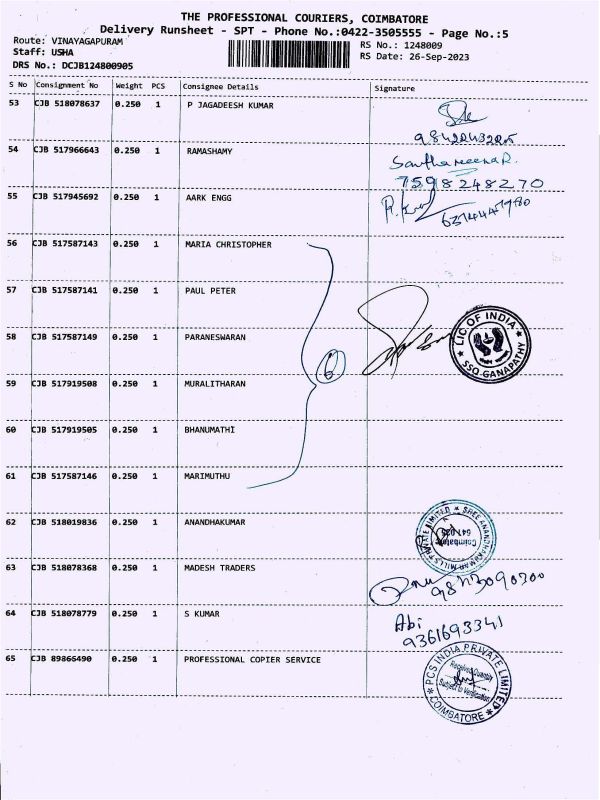 THE PROFESSIONAL COURIERS, COIMBATORE
Delivery Runsheet - SPT - Phone No.:0422-3505555 - Page No.:5
Route: VINAYAGAPURAM
RS No.: 1248009
Staff: USHA
RS Date: 26-Sep-2023
DRS No.: DCJB124800905
S No Consignment No Weight PCS Consignee Details Signature
53 CJB 518078637 0.250 1 P JAGADEESH KUMAR
54 CJB 517966643 0.250 1 RAMASHAMY
7598248270
55 CJB 517945692 0.250 1 AARK ENGG
56 CJB 517587143 0.250 1 MARIA CHRISTOPHER
57 CJB 517587141 0.250 1 PAUL PETER
LIC OF INDIA
SSO GANAPATHY
58 CJB 517587149 0.250 1 PARANESWARAN
6
59 CJB 517919508 0.250 1 MURALITHARAN
60 CJB 517919505 0.250 1 BHANUMATHI
61 CJB 517587146 0.250 1 MARIMUTHU
62 CJB 518019836 0.250 1 ANANDHAKUMAR
63 CJB 518078368 0.250 1 MADESH TRADERS
64 CJB 518078779 0.250 1 S KUMAR
Abi
9361693341
65 CJB 89866490 0.250 1 PROFESSIONAL COPIER SERVICE
PCS INDIA PRIVATE LIMITED
Received Quantity
Subject to Verification
COIMBATORE